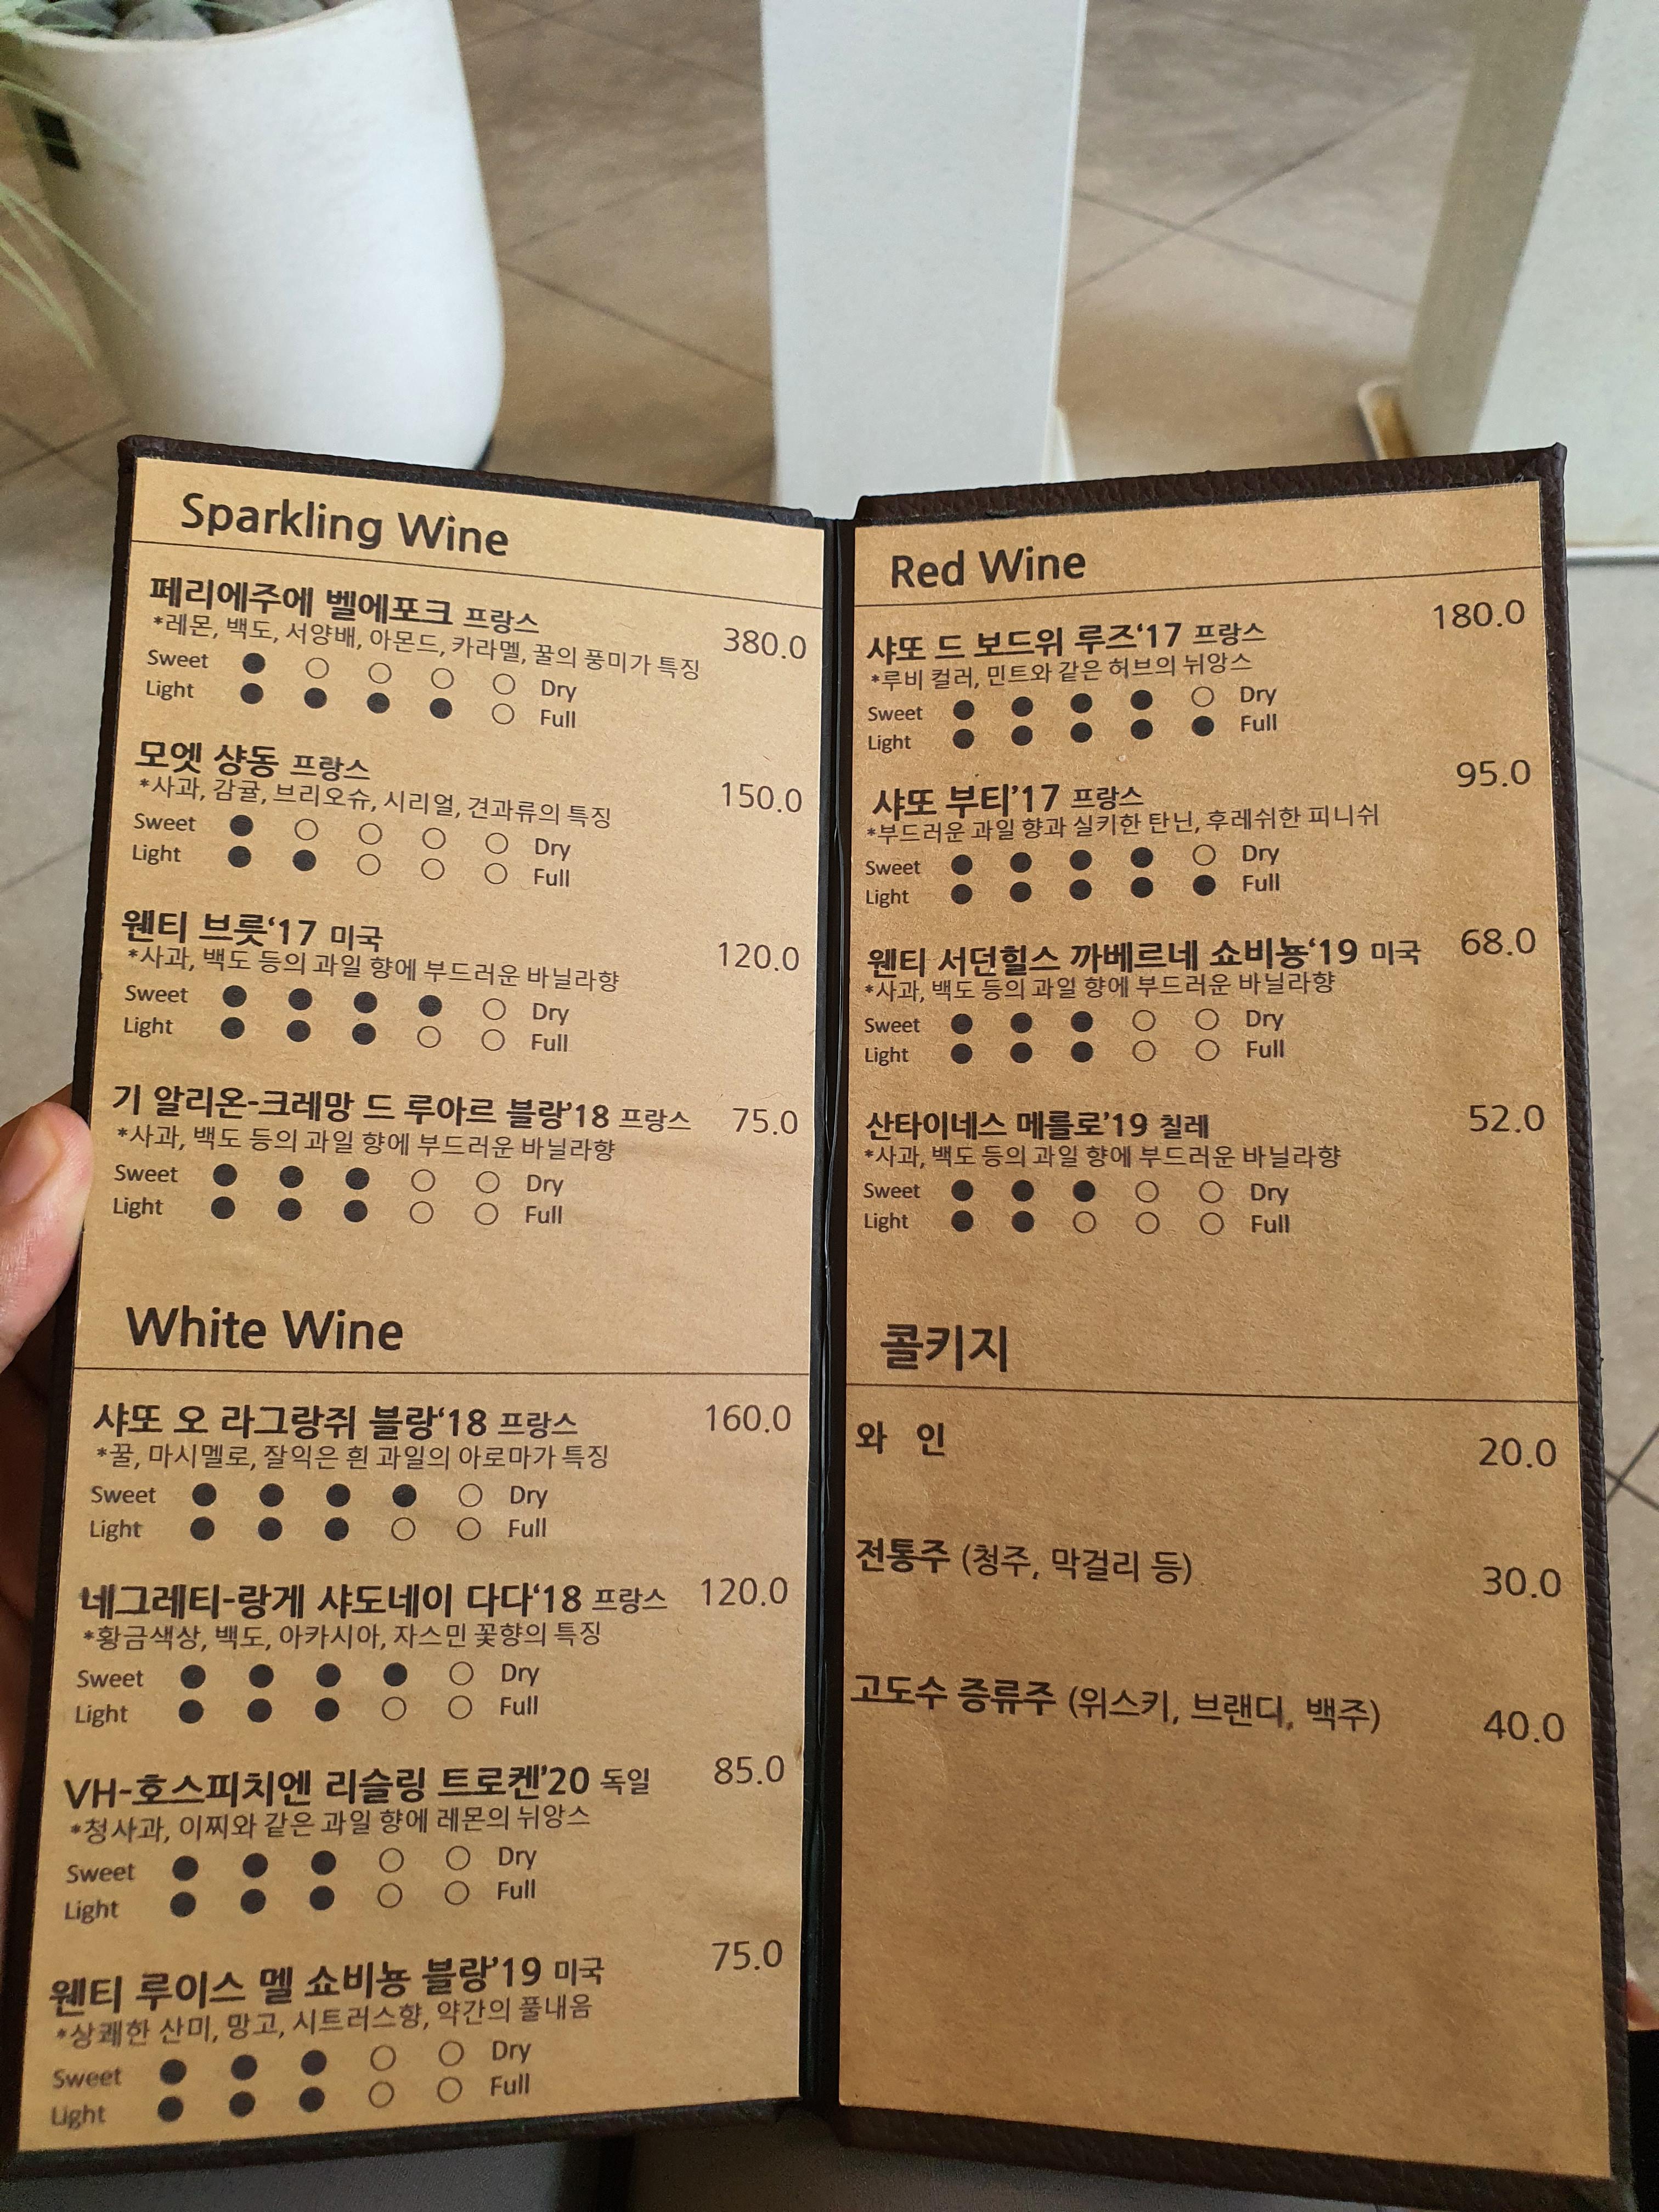 Sparkling Wine
페리에주에 벨에포크 프랑스 380.0
*레몬, 백도, 서양배, 아몬드, 카라멜, 꿀의 풍미가 특징
Sweet ● ○ ○ ○ ○ Dry
Light ● ● ● ● ○ Full
모엣 샹동 프랑스 150.0
*사과, 감귤, 브리오슈, 시리얼, 견과류의 특징
Sweet ● ○ ○ ○ ○ Dry
Light ● ● ○ ○ ○ Full
웬티 브룻‘17 미국 120.0
*사과, 백도 등의 과일 향에 부드러운 바닐라향
Sweet ● ● ● ● ○ Dry
Light ● ● ● ○ ○ Full
기 알리온-크레망 드 루아르 블랑’18 프랑스 75.0
*사과, 백도 등의 과일 향에 부드러운 바닐라향
Sweet ● ● ● ○ ○ Dry
Light ● ● ● ○ ○ Full
White Wine
샤또 오 라그랑쥐 블랑‘18 프랑스 160.0
*꿀, 마시멜로, 잘익은 흰 과일의 아로마가 특징
Sweet ● ● ● ● ○ Dry
Light ● ● ● ○ ○ Full
네그레티-랑게 샤도네이 다다‘18 프랑스 120.0
*황금색상, 백도, 아카시아, 자스민 꽃향의 특징
Sweet ● ● ● ● ○ Dry
Light ● ● ● ○ ○ Full
VH-호스피치엔 리슬링 트로켄’20 독일 85.0
*청사과, 이찌와 같은 과일 향에 레몬의 뉘앙스
Sweet ● ● ● ○ ○ Dry
Light ● ● ● ○ ○ Full
웬티 루이스 멜 쇼비뇽 블랑’19 미국 75.0
*상쾌한 산미, 망고, 시트러스향, 약간의 풀내음
Sweet ● ● ● ○ ○ Dry
Light ● ● ● ○ ○ Full
Red Wine
샤또 드 보드위 루즈‘17 프랑스 180.0
*루비 컬러, 민트와 같은 허브의 뉘앙스
Sweet ● ● ● ● ○ Dry
Light ● ● ● ● ● Full
샤또 부티’17 프랑스 95.0
*부드러운 과일 향과 실키한 탄닌, 후레쉬한 피니쉬
Sweet ● ● ● ● ○ Dry
Light ● ● ● ● ● Full
웬티 서던힐스 까베르네 쇼비뇽‘19 미국 68.0
*사과, 백도 등의 과일 향에 부드러운 바닐라향
Sweet ● ● ● ○ ○ Dry
Light ● ● ● ○ ○ Full
산타이네스 메를로’19 칠레 52.0
*사과, 백도 등의 과일 향에 부드러운 바닐라향
Sweet ● ● ● ○ ○ Dry
Light ● ● ○ ○ ○ Full
콜키지
와 인 20.0
전통주 (청주, 막걸리 등) 30.0
고도수 증류주 (위스키, 브랜디, 백주) 40.0